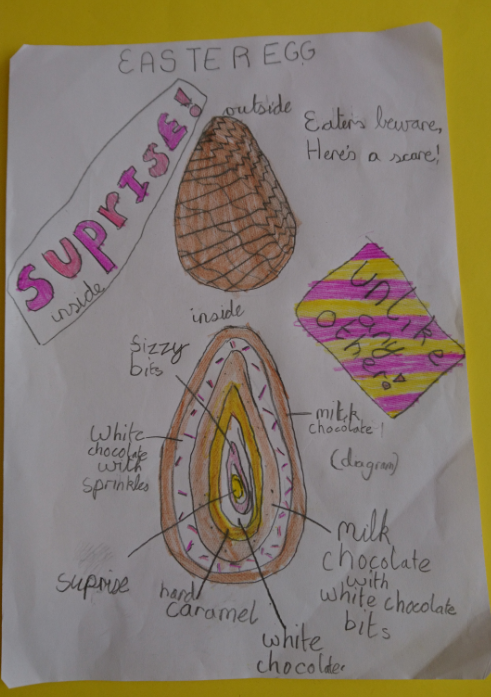 EASTER EGG
SUPrISE!
inside
outside
Eaters beware,
Here's a scare!
unlike
any
other!
inside
Sizzy
bits
milk
chocolate
(diagram)
White
chocolate
with
sprinkles
suprise
hard
caramel
white
chocolate
milk
chocolate
with
white chocolate
bits